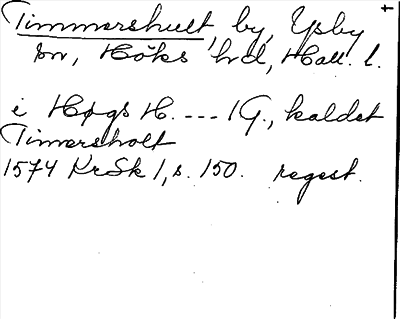 Timmershult, by, Ysby
sn, Höks hd, Hall. l.
i Høgs H. --- 1G., kaldet
Timersholt
1574 KrSk 1, s. 150. regest.